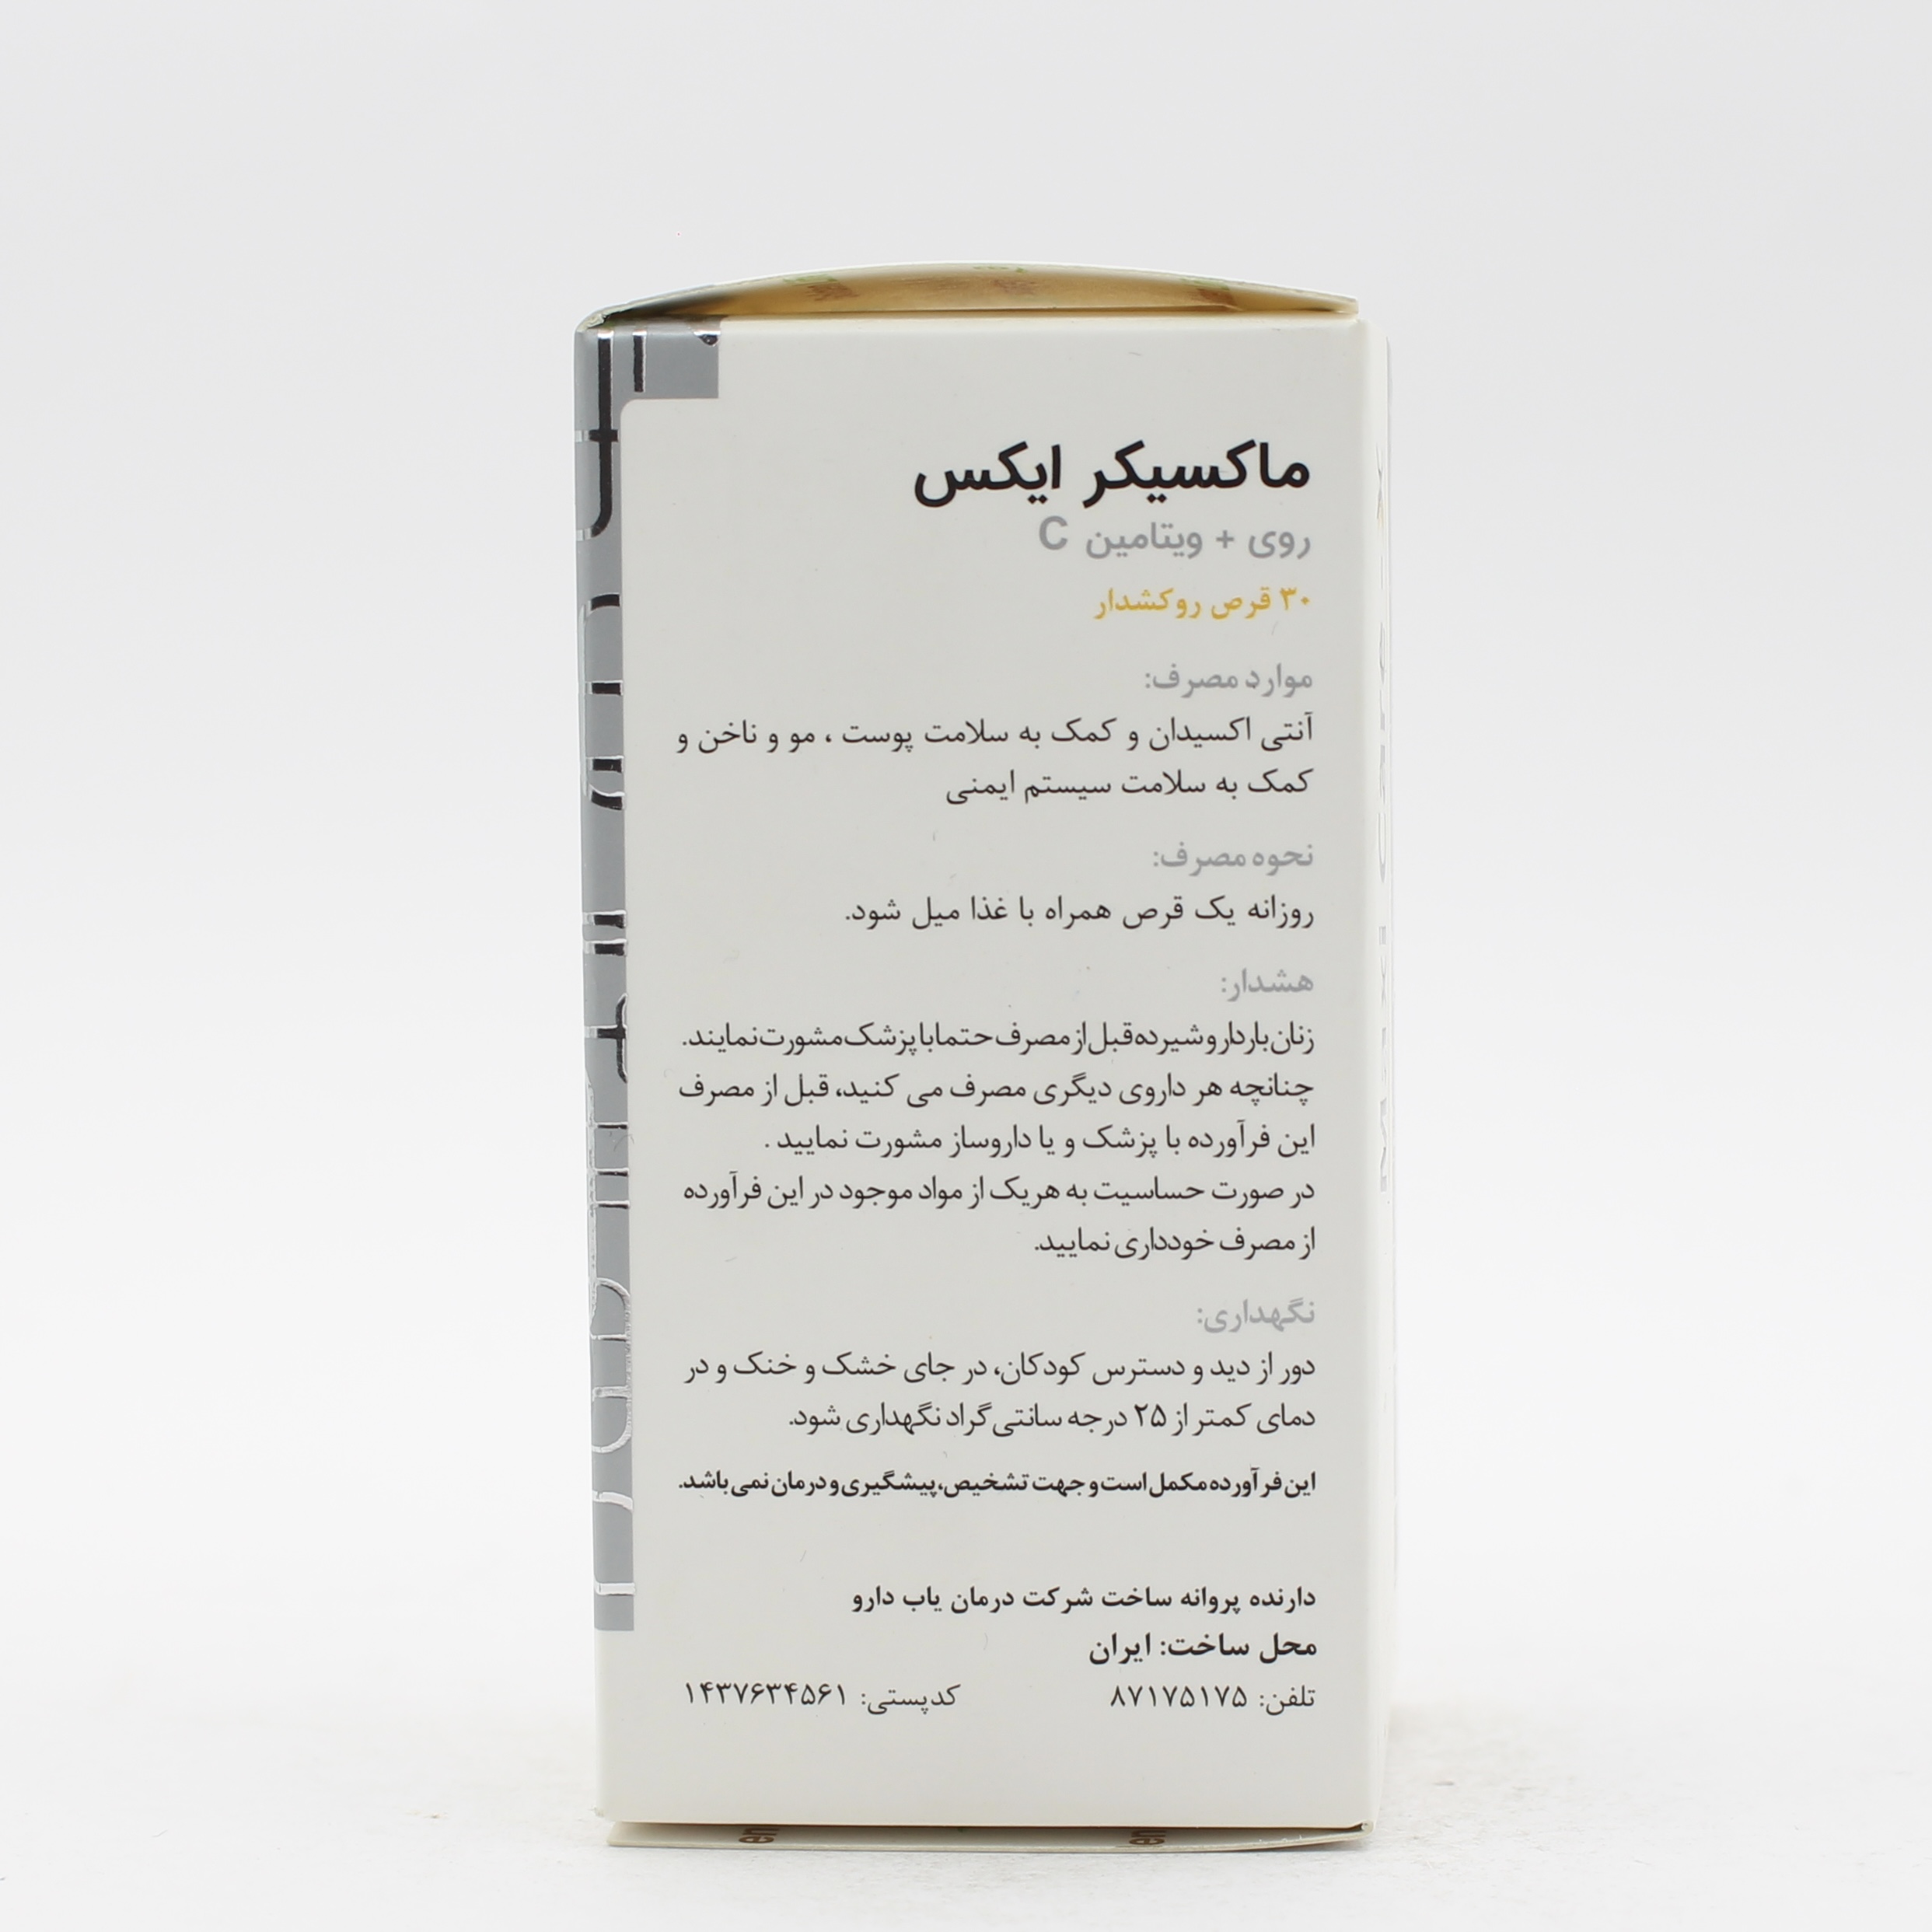 ماکسیکر ایکس
روی + ویتامین C
۳۰ قرص روکشدار
موارد مصرف:
آنتی اکسیدان و کمک به سلامت پوست ، مو و ناخن و
کمک به سلامت سیستم ایمنی
نحوه مصرف:
روزانه یک قرص همراه با غذا میل شود.
هشدار:
زنان باردار و شیرده قبل از مصرف حتما با پزشک مشورت نمایند.
چنانچه هر داروی دیگری مصرف می کنید، قبل از مصرف
این فرآورده با پزشک و یا داروساز مشورت نمایید .
در صورت حساسیت به هریک از مواد موجود در این فرآورده
از مصرف خودداری نمایید.
نگهداری:
دور از دید و دسترس کودکان، در جای خشک و خنک و در
دمای کمتر از ۲۵ درجه سانتی گراد نگهداری شود.
این فرآورده مکمل است و جهت تشخیص، پیشگیری و درمان نمی باشد.
دارنده پروانه ساخت شرکت درمان یاب دارو
محل ساخت: ایران
تلفن: ۸۷۱۷۵۱۷۵ کدپستی: ۱۴۳۷۶۳۴۵۶۱